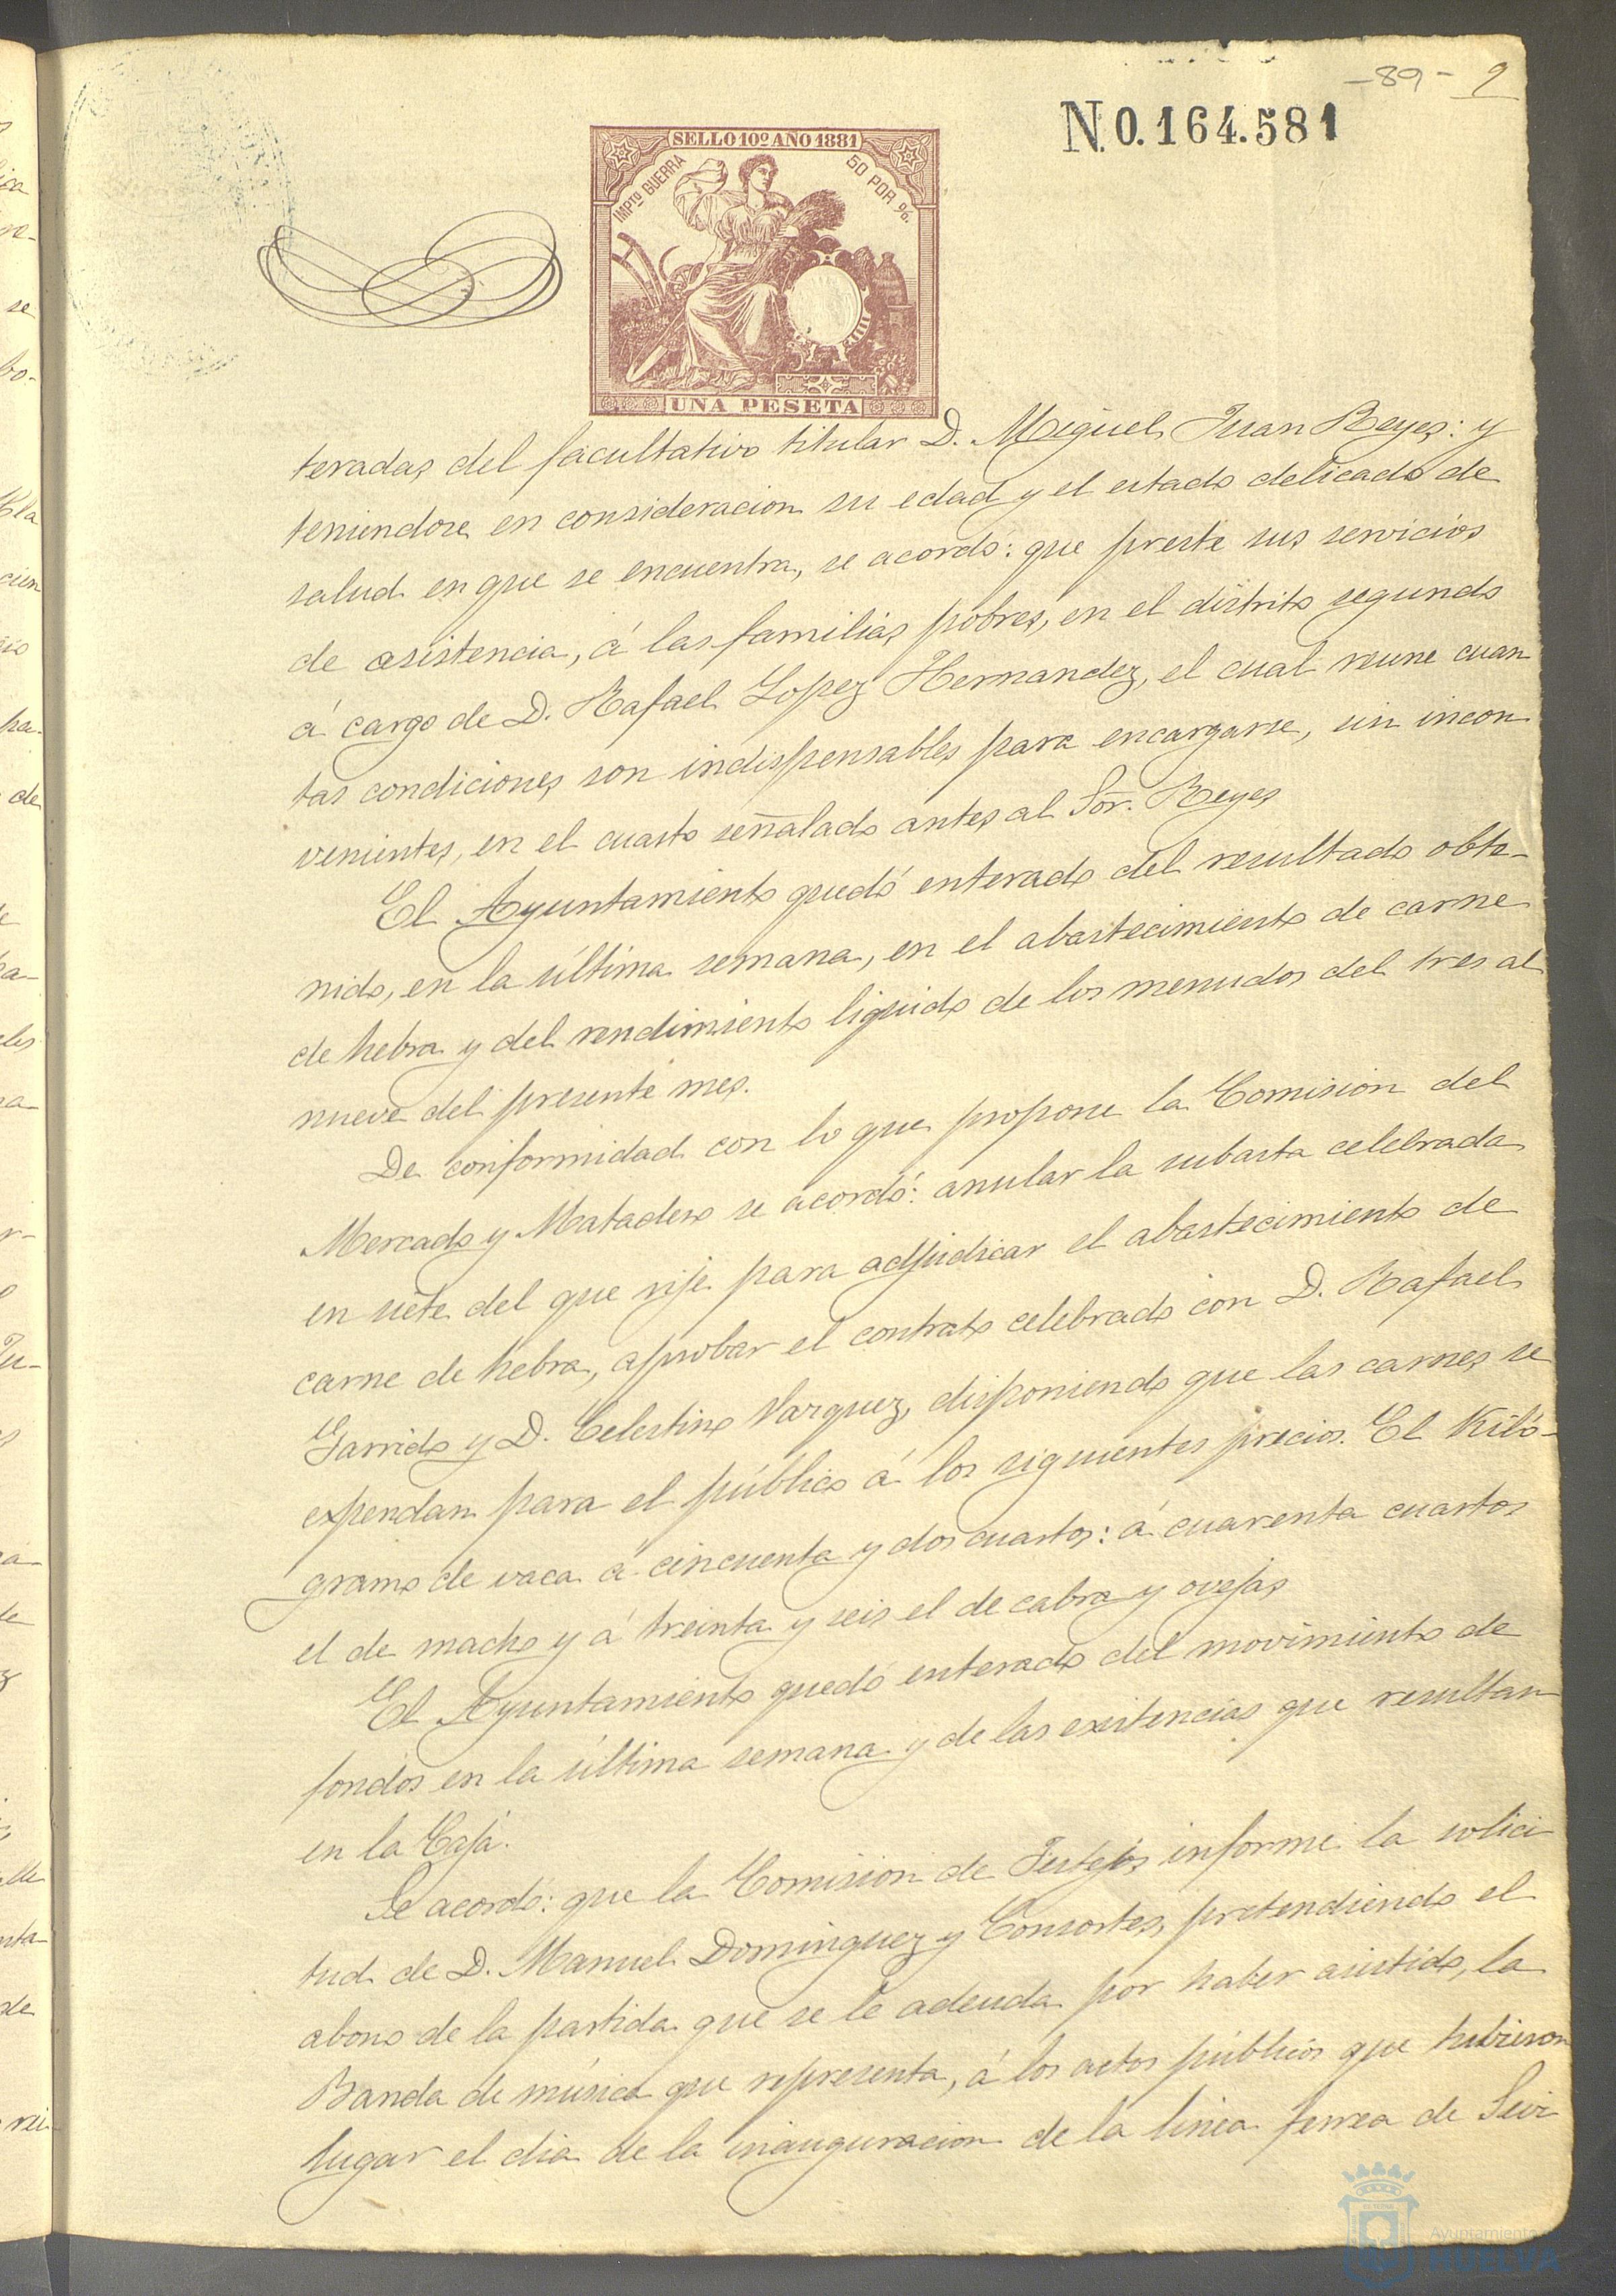 -89- 9
N.0.164.581
SELLO 10º AÑO 1881
IMPTO GUERRA 50 POR %.
UNA PESETA
teradas del facultativo titular D. Miguel Juan Reyes: y
teniendose en consideracion su edad y el estado delicado de
salud en que se encuentra, se acordó: que preste sus servicios
de asistencia, á las familias pobres, en el distrito segundo
á cargo de D. Rafael Lopez Hernandez, el cual reune cuan
tas condiciones son indispensables para encargarse, sin incon
venientes, en el cuarto señalado antes al Sõr. Reyes
El Ayuntamiento quedó enterado del resultado obte-
nido, en la última semana, en el abastecimiento de carne
de hebra y del rendimiento liquido de los menudos del tres al
nueve del presente mes.
De conformidad con lo que propone la Comision del
Mercado y Matadero se acordó: anular la subasta celebrada
en siete del que rije para adjudicar el abastecimiento de
carne de hebra, aprobar el contrato celebrado con D. Rafael
Garrido y D. Celestino Vazquez, disponiendo que las carnes se
expendan para el público á los siguientes precios. El Kiló-
gramo de vaca á cincuenta y dos cuartos: á cuarenta cuartos
el de macho y á treinta y seis el de cabra y ovejas
El Ayuntamiento quedó enterado del movimiento de
fondos en la última semana y de las existencias que resultan
en la Caja.
Se acordó: que la Comision de Festejos informe la solici
tud de D. Manuel Dominguez y Consortes, pretendiendo el
abono de la partida que se le adeuda por haber asistido, la
Banda de música que representa, á los actos públicos que tubieron
lugar el dia de la inauguracion de la linea ferrea de Sevi
Ayuntamiento
HUELVA